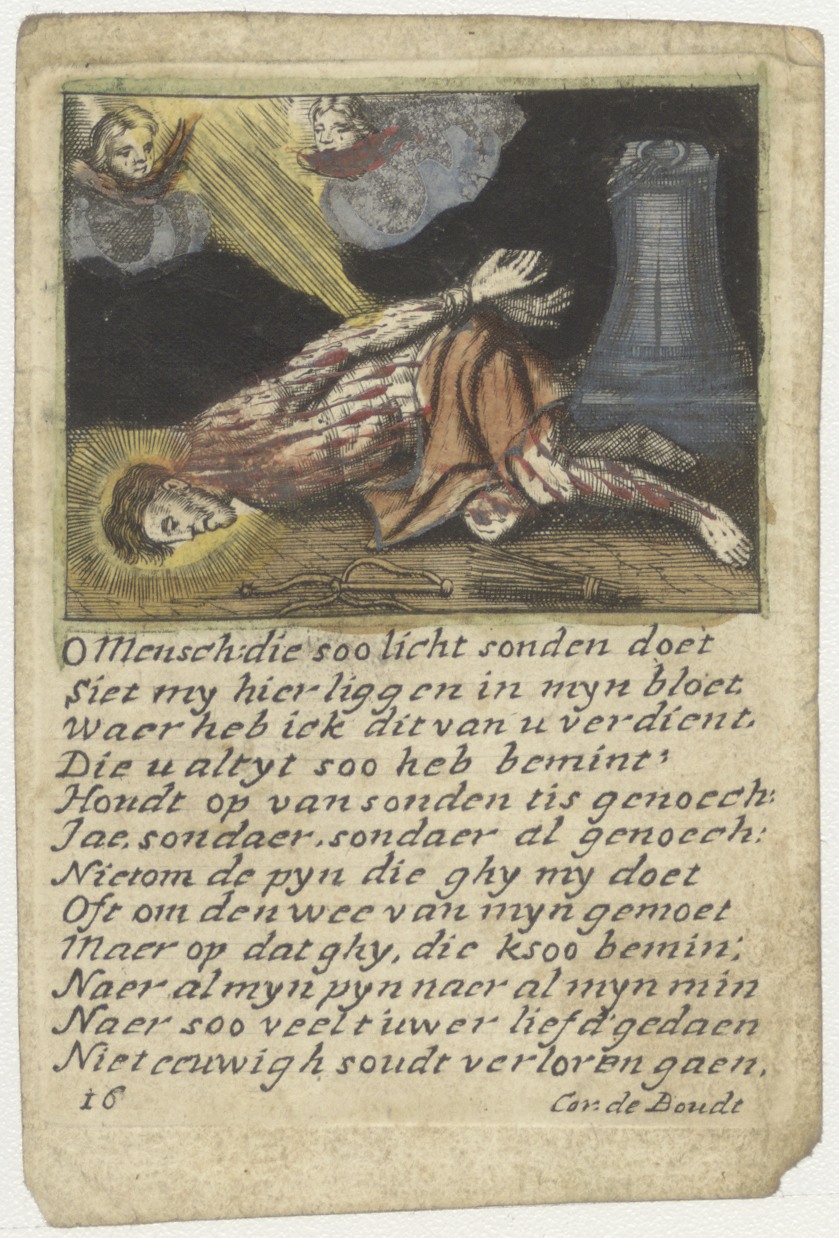 O Mensch: die soo licht sonden doet
Siet my hier liggen in myn bloet.
Waer heb ick dit van u verdient.
Die u altyt soo heb bemint:
Houdt op van sonden tis genoech:
Jae. sondaer. sondaer al genoech:
Niet om de pyn die ghy my doet
Oft om den wee van myn gemoet
Maer op dat ghy, die ksoo bemin;
Naer al myn pyn naer al myn min
Naer soo veel t'uwer liefd' gedaen
Niet eeuwigh soudt verloren gaen.
16
Cor: de Boudt